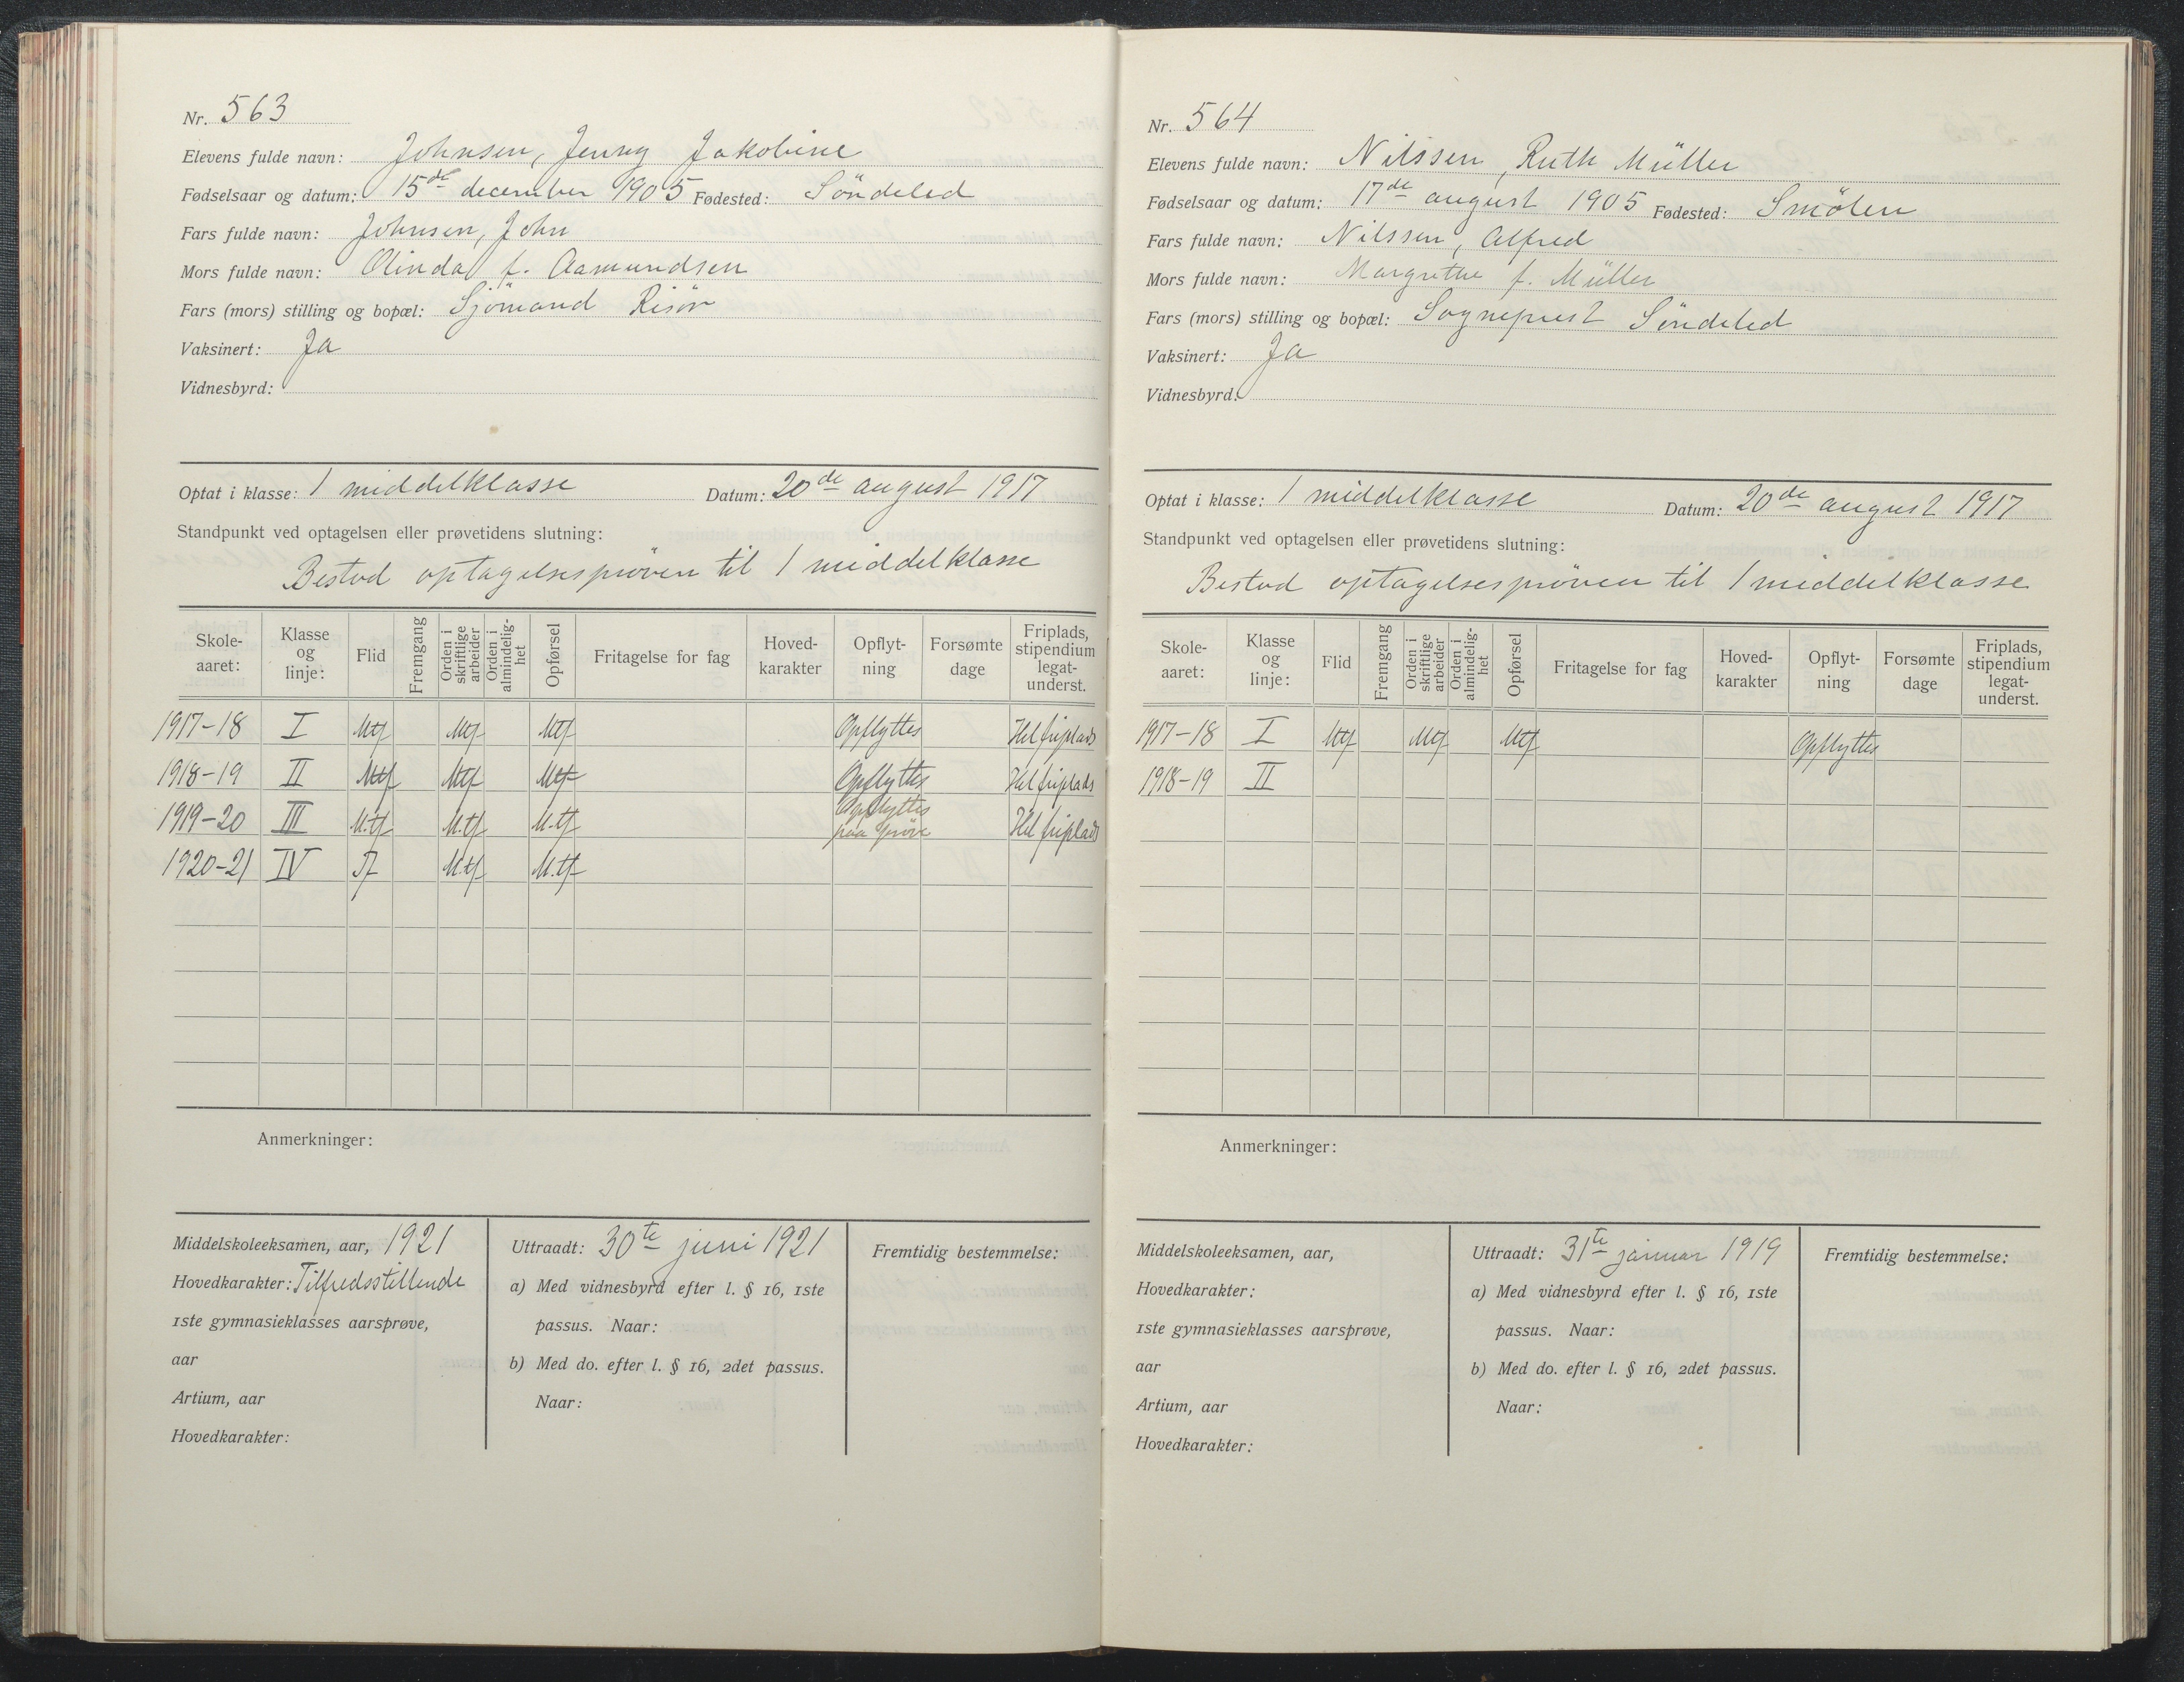 Nr. 563
Elevens fulde navn: Johnsen, Jenny Jakobine
Fødselsaar og datum: 15de december 1905 Fødested: Söndeled
Fars fulde navn: Johnsen, John
Mors fulde navn: Olinda f. Aamundsen
Fars (mors) stilling og bopæl: Sjömand Risör
Vaksinert: Ja
Vidnesbyrd:
Optat i klasse: 1 middelklasse Datum: 20de august 1917
Standpunkt ved optagelsen eller prøvetidens slutning:
Bestod optagelsespröven til 1 middelklasse
Skole-aaret: Klasse og linje: Flid Fremgang Orden i skriftlige arbeider Orden i almindelig-het Opførsel Fritagelse for fag Hoved-karakter Opflyt-ning Forsømte dage Friplads, stipendium legat-underst.
1917-18 I Mtf Mtf Mtf Opflyttes Hel friplads
1918-19 II Mtf Mtf Mtf Opflyttes Hel friplads
1919-20 III M.tf M.tf M.tf Opflyttes paa prøve Hel friplads
1920-21 IV Tf M.tf M.tf
Anmerkninger:
Middelskoleeksamen, aar, 1921
Hovedkarakter: Tilfredsstillende
1ste gymnasieklasses aarsprøve,
aar
Artium, aar
Hovedkarakter:
Uttraadt: 30te juni 1921
a) Med vidnesbyrd efter l. § 16, 1ste
passus. Naar:
b) Med do. efter l. § 16, 2det passus.
Naar:
Fremtidig bestemmelse:
Nr. 564
Elevens fulde navn: Nilssen, Ruth Müller
Fødselsaar og datum: 17de august 1905 Fødested: Smölen
Fars fulde navn: Nilssen, Alfred
Mors fulde navn: Margrethe f. Müller
Fars (mors) stilling og bopæl: Sogneprest Söndeled
Vaksinert: Ja
Vidnesbyrd:
Optat i klasse: 1 middelklasse Datum: 20de august 1917
Standpunkt ved optagelsen eller prøvetidens slutning:
Bestod optagelsespröven til 1 middelklasse
Skole-aaret: Klasse og linje: Flid Fremgang Orden i skriftlige arbeider Orden i almindelig-het Opførsel Fritagelse for fag Hoved-karakter Opflyt-ning Forsømte dage Friplads, stipendium legat-underst.
1917-18 I Mtf Mtf Mtf Opflyttes
1918-19 II
Anmerkninger:
Middelskoleeksamen, aar,
Hovedkarakter:
1ste gymnasieklasses aarsprøve,
aar
Artium, aar
Hovedkarakter:
Uttraadt: 31te januar 1919
a) Med vidnesbyrd efter l. § 16, 1ste
passus. Naar:
b) Med do. efter l. § 16, 2det passus.
Naar:
Fremtidig bestemmelse: